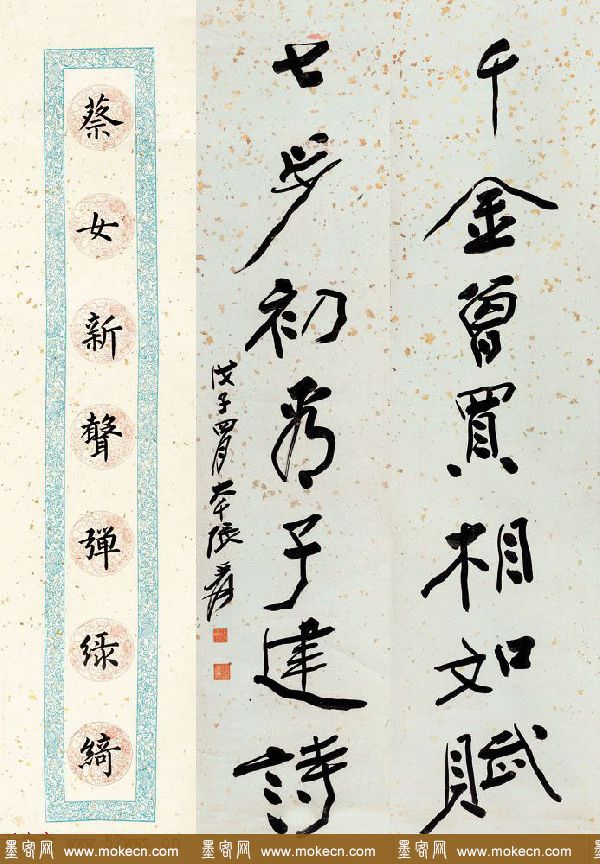 千金曾買相如賦
七步初看子建詩
戊子四月 大千張爰
蔡女新聲彈綠綺
墨客网 www.mokecn.com 墨客网 www.mokecn.com 墨客网 www.mokecn.com 墨客网